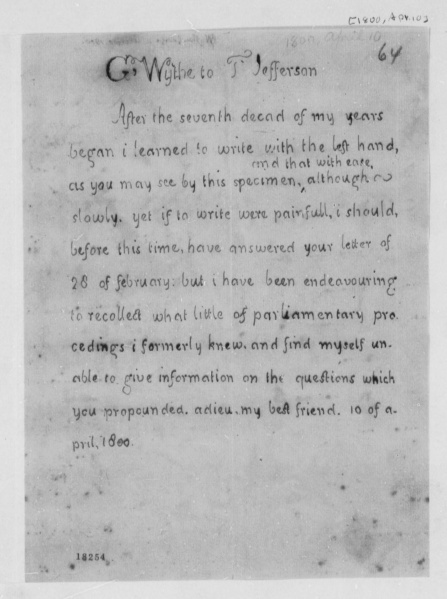 [1800, Apr. 10]
1800, April 10
64
G. Wythe to T Jefferson
After the seventh decad of my years
began i learned to write with the left hand,
and that with ease,
as you may see by this specimen, although
slowly. yet if to write were painfull, i should,
before this time, have answered your letter of
28 of february. but i have been endeavouring
to recollect what little of parliamentary pro
cedings i formerly knew, and find myself un-
able to give information on the questions which
you propounded. adieu, my best friend. 10 of a-
pril, 1800.
18254